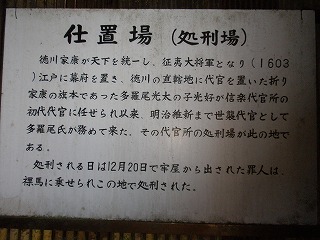 仕置場(処刑場)
徳川家康が天下を統一し、征夷大将軍となり(1603
)江戸に幕府を置き、徳川の直轄地に代官を置いた折り
家康の旗本であった多羅尾光太の子光好が信楽代官所の
初代代官に任ぜられ以来、明治維新まで世襲代官として
多羅尾氏が務めて来た。その代官所の処刑場が此の地で
ある。
処刑される日は12月20日で牢屋から出された罪人は、
裸馬に乗せられこの地で処刑された。